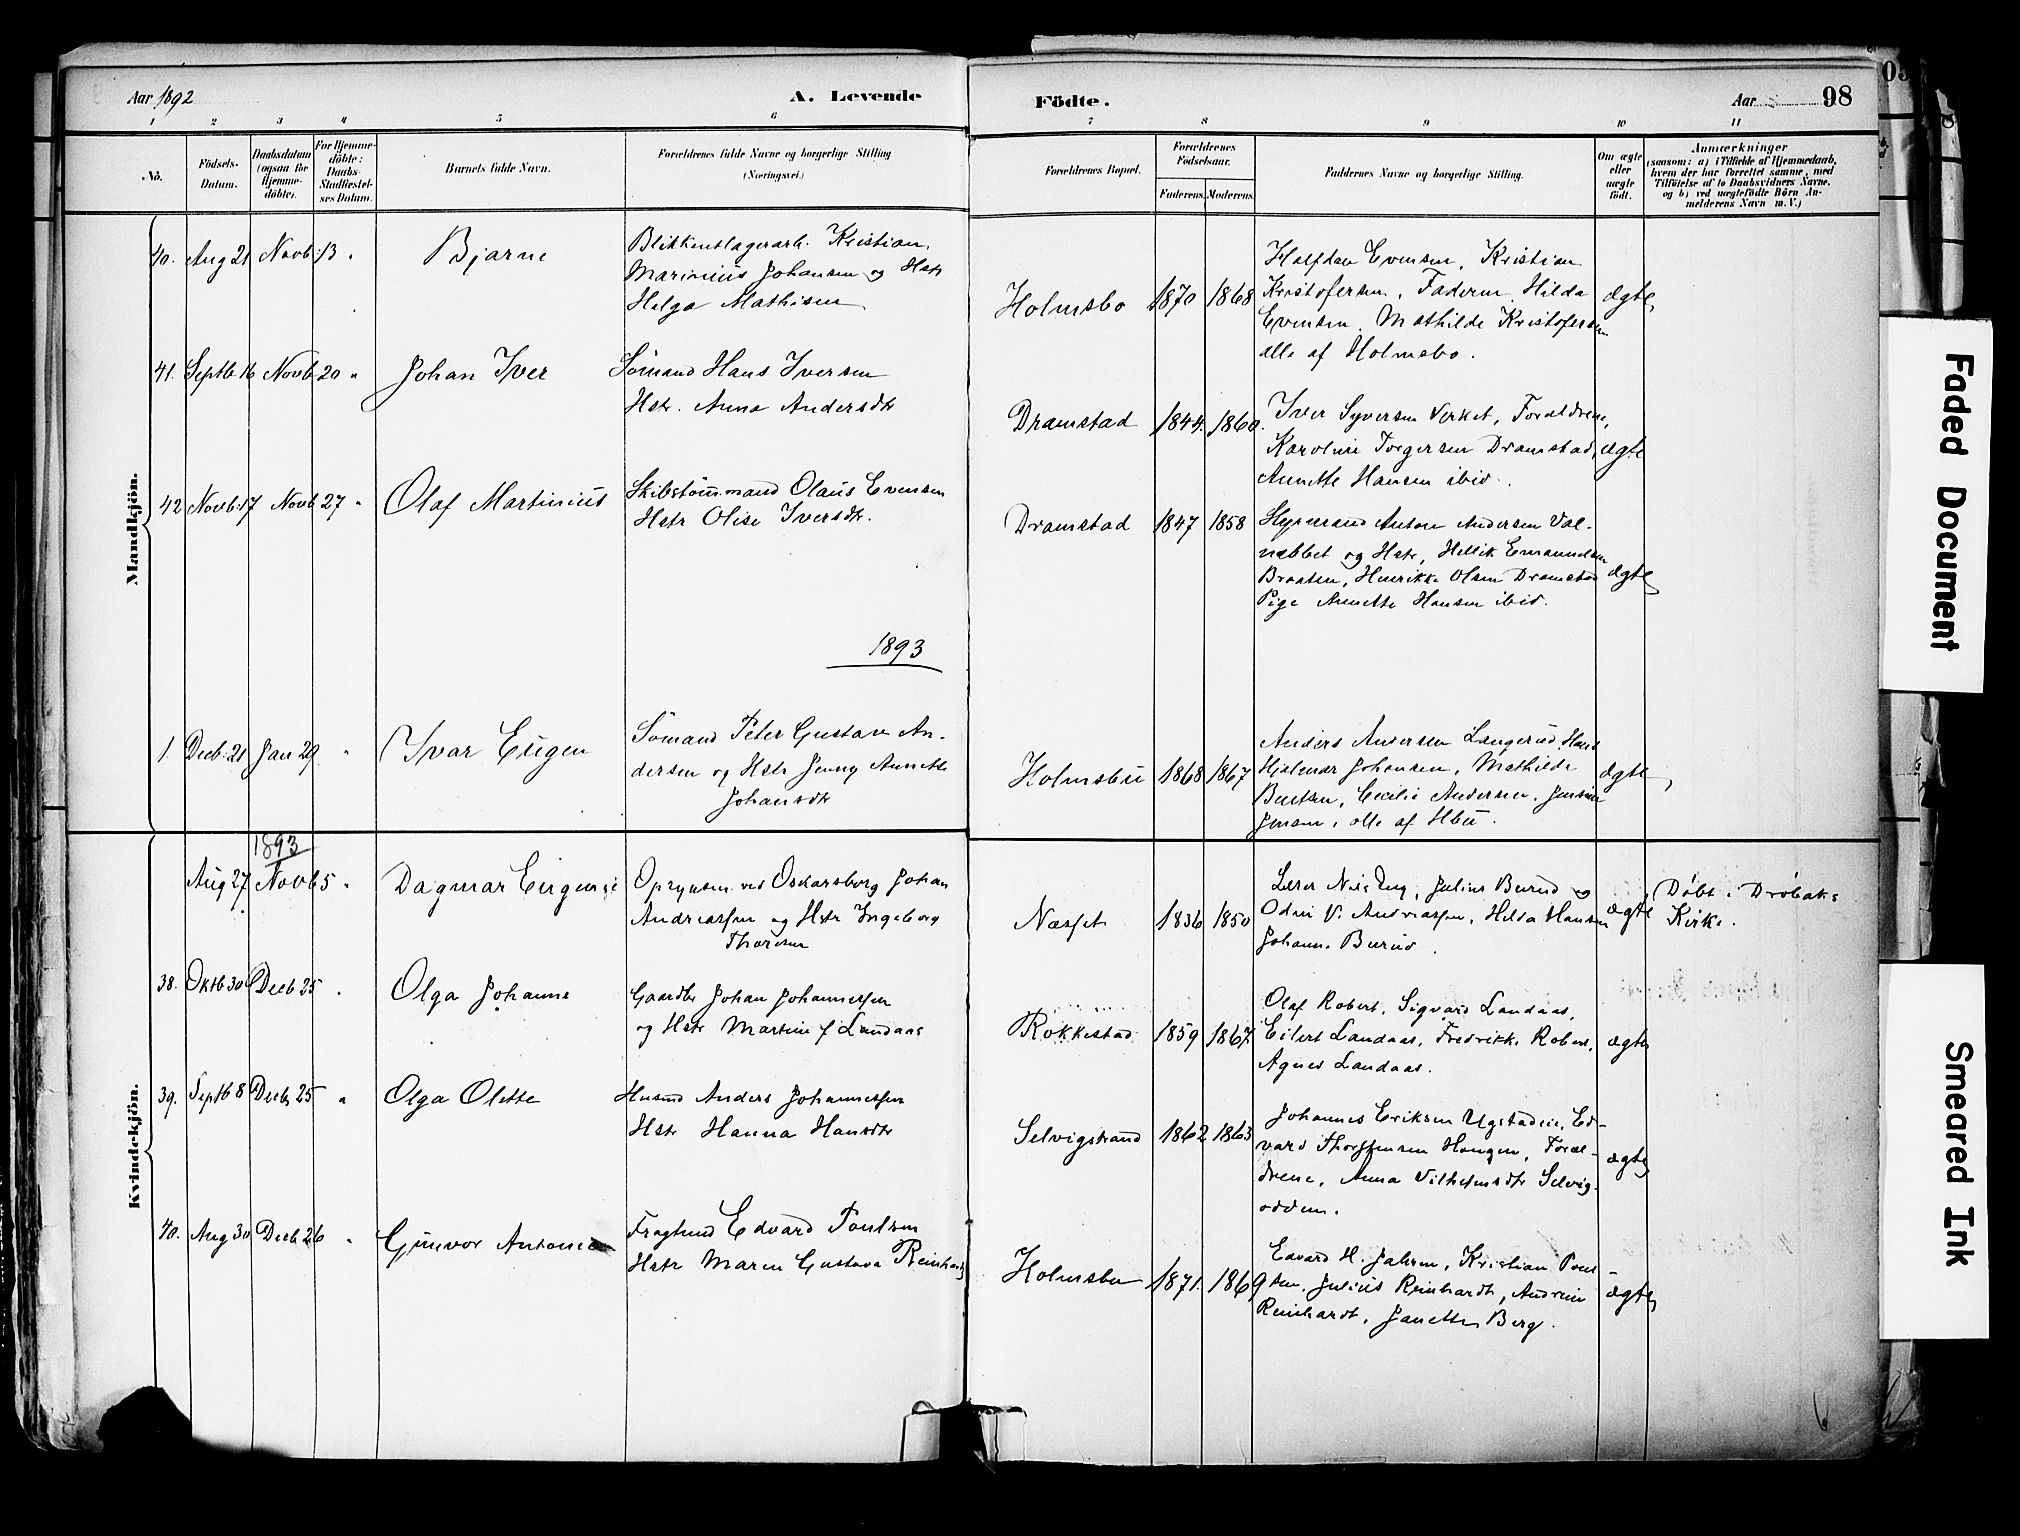 Aar 1892
A. Levende
Födte.
Aar 98
1 2 3 4 5 6 7 8 9 10 11
No.
Födsels-
Datum.
Daabsdatum
(ogsaa for
Hjemme-
döbte).
For Hjemme-
döbte:
Daabs-
Stadfæstel-
ses Datum.
Barnets fulde Navn.
Forældrenes fulde Navne og borgerlige Stilling
(Næringsvei.)
Forældrenes Bopæl.
Forældrenes
Födselsaar.
Faderens. Moderens.
Faddernes Navne og borgerlige Stilling.
Om ægte
eller
uægte
födt.
Anmærkninger
(saasom: a) i Tilfælde af Hjemmedaab,
hvem der har forrettet samme, med
Tilföielse af to Daabsvidners Navne,
og b) ved uægtefödte Börn An-
melderens Navn m. V.)
Mandkjön.
40. Aug 21 Novb: 13 " Bjarne
Blikkenslagerarb. Kristian
Marinius Johansen og Hstr
Helga Mathisen
Holmsbo 1870 1868
Halfdan Evensen, Kristian
Kristofersen, Faderen, Hilda
Evensen, Mathilde Kristofersen
alle af Holmsbo.
ægte
41. Septb 16 Novb 20 " Johan Iver
Sömand Hans Iversen
Hstr. Anna Andersdtr
Dramstad 1844. 1860.
Iver Syversen Verket, Forældrene,
Karoline Torgersen Dramstad,
Annette Hansen ibid.
ægte
42 Novb: 17 Novb 27 " Olaf Martinius
Skibstömmand Olaus Evensen
Hstr Olise Iversdtr.
Dramstad 1847 1858
Anton Andersen Val-
nebbet og Hstr, Hellik Emanuelsen
Braaten, Henrikke Olsen Dramstad
Pige Annette Hansen ibid.
ægte
1893
1. Decb: 21 Jan 29 " Ivar Eugen
Sömand Peter Gustav An-
dersen og Hstr Jenny Annette
Johansdtr
Holmsbu 1868 1867
Anders Andersen Langerud, Hans
Hjalmar Johansen, Mathilde
Berntsen, Cecilie Andersen, Jensine
Jensen, alle af Hbu.
ægte
Kvindekjön.
1893
Aug 27 Novb 5 " Dagmar Eugenie
ved Oskarsborg Johan
Andreassen og Hstr Ingeborg
Thoresen
Næsset 1836 1850
Julius Burud og
Odin V. Andreassen, Hilda Hansen
Johanne Burud.
ægte
Döbt i Dröbaks
Kirke.
38. Oktb 30 Decb 25 " Olga Johanne
Gaardbr Johan Johannessen
og Hstr Martine f Landaas
Rokkestad 1859 1867
Olaf Robert, Sigvard Landaas,
Eilert Landaas, Fredrikke Robert,
Agnes Landaas.
ægte
39. Septb 8 Decb 25 " Olga Olette
Husmd Anders Johannessen
Hstr Hanna Hansdtr
Selvigstrand 1862 1863
Johannes Eriksen Ugstadeie, Ed-
vard Thorstensen Haugen, Foræl-
drene, Anna Vilhelmsdtr Selvig-
odden.
ægte
40. Aug 30 Decb 26 " Gunvor Antonie
Edvard Poulsen
Hstr Maren Gustava Reinhardt
Holmsbu 1871. 1869
Edvard H. Jahren, Kristian Poul-
sen, Julius Reinhardt, Andrine
Reinhardt, Janette Berg.
ægte
Faded Document
Smeared Ink